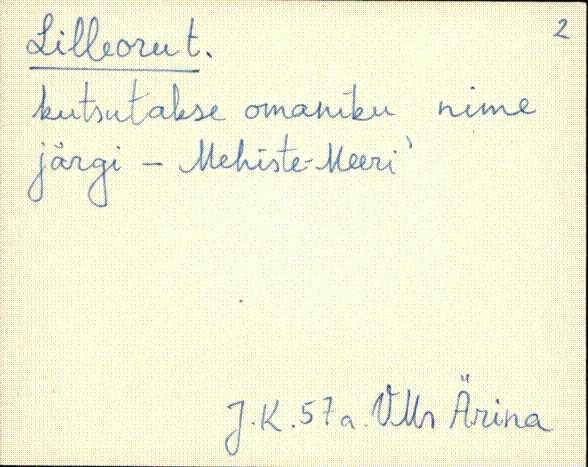 2
Lilleorut.
kutsutakse omaniku nime
järgi – Mehiste-Meeri'
J.K. 57a. VMr Ärina